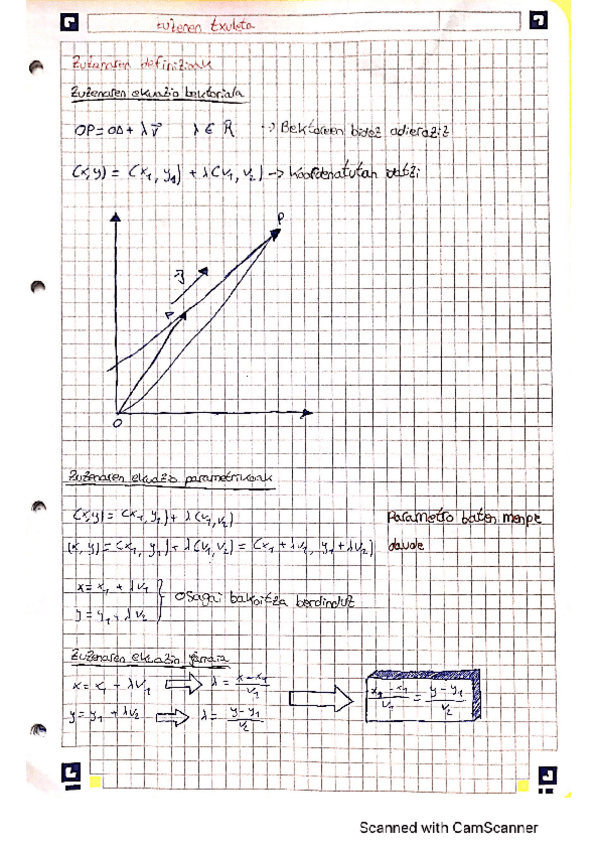 zuzenen txuleta
Zuzenaren definizioak
Zuzenaren ekuazio bektoriala
OP = OA + λv⃗ λ ∈ ℝ -> Bektoreen bidez adieraziz
(x,y) = (x₁, y₁) + λ(v₁, v₂) -> koordenatutan
P
v⃗
A
O
Zuzenaren ekuazio parametrikoak
(x,y) = (x₁, y₁) + λ(v₁, v₂) Parametro baten menpe
(x, y) = (x₁, y₁) + λ(v₁, v₂) = (x₁ + λv₁, y₁ + λv₂) daude
x = x₁ + λv₁
y = y₁ + λv₂ } Osagai bakoitza berdinduz
Zuzenaren ekuazio jarraia
x = x₁ - λv₁ ⇒ λ = (x - x₁)/v₁
y = y₁ + λv₂ ⇒ λ = (y - y₁)/v₂ ⇒ (x₂ - x₁)/v₁ = (y - y₁)/v₂
Scanned with CamScanner